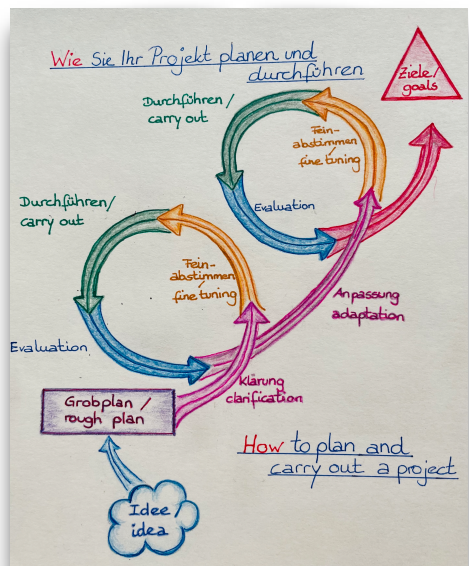 Wie Sie Ihr Projekt planen und
durchführen
Ziele/
goals
Durchführen/
carry out
Fein-
abstimmen
fine tuning
Evaluation
Durchführen/
carry out
Fein-
abstimmen
fine tuning
Anpassung
adaptation
Evaluation
Klärung
clarification
Grobplan /
rough plan
How to plan and
carry out a project
Idee/
idea